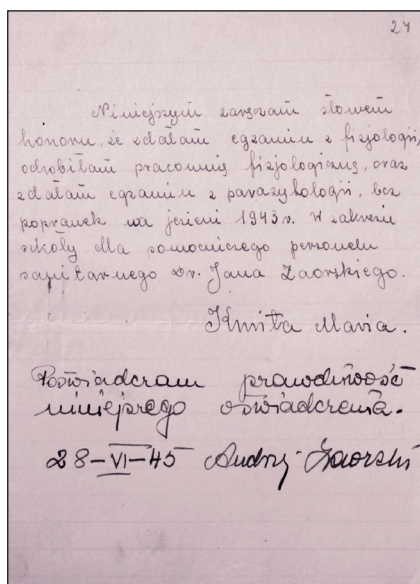 27
Niniejszym zaręczam słowem
honoru, że zdałam egzamin z fizjologii,
odrobiłam pracownię fizjologiczną, oraz
zdałam egzamin z parazytologii, bez
poprawek na jesieni 1943 r. w zakresie
szkoły dla pomocniczego personelu
sanitarnego Dr. Jana Zaorskiego.
Kmita Maria.
Poświadczam prawdziwość
niniejszego oświadczenia.
28-VI-45 Andrzej Zaorski